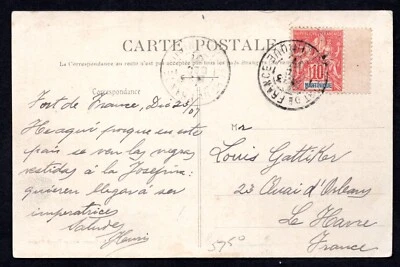 CARTE POSTALE
La Correspondance au recto n'est pas acceptée par tous les pays étrangers
Correspondance
Fort de France, Dic 25/07
He aquí porque en este
pais se ven las negras
vestidas à la Josefina:
quieren llegar á ser
imperatrices
Saludos
Henri
10
MARTINIQUE
FORT DE FRANCE
Mr
Louis Gattiker
23 Quai d'Orleans
Le Havre
France